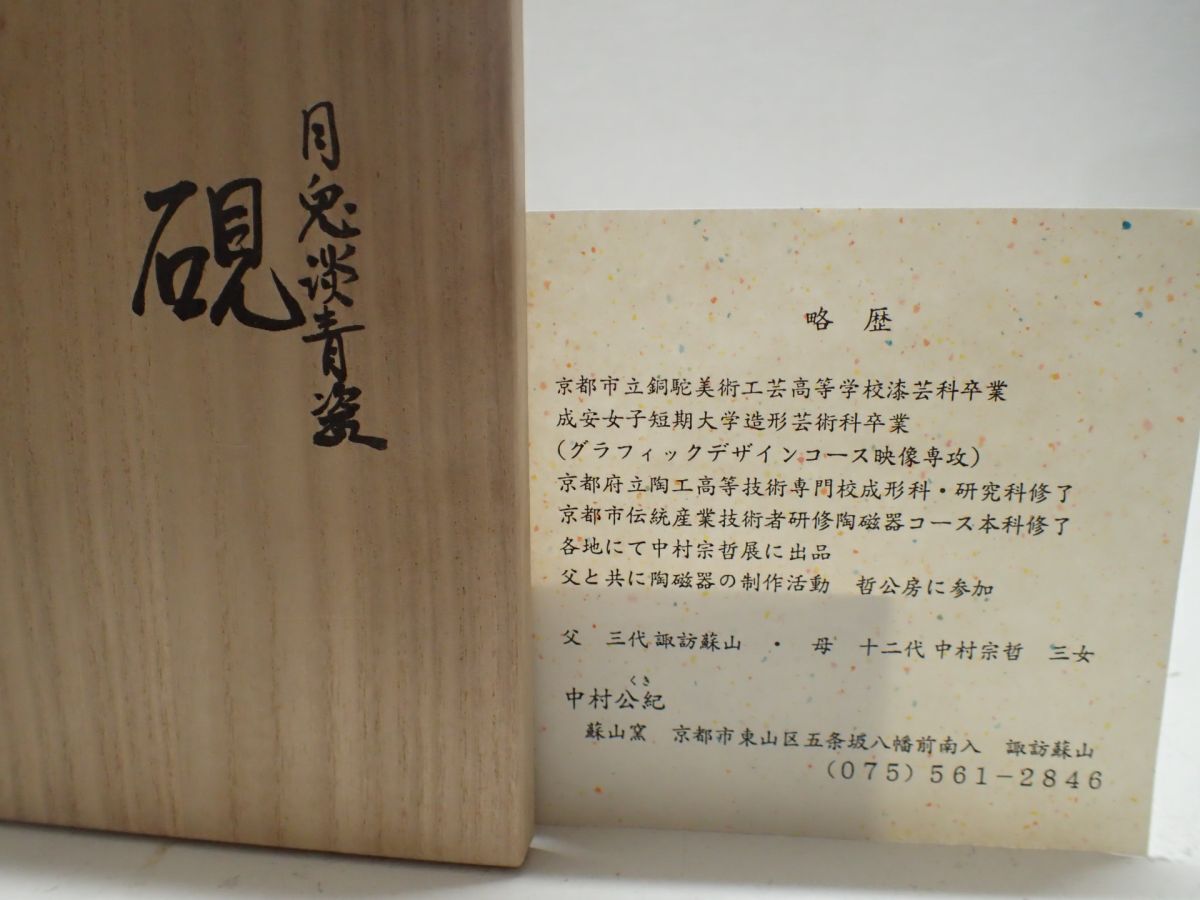 月兔談青瓷
硯
略 歴
京都市立銅駝美術工芸高等学校漆芸科卒業
成安女子短期大学造形芸術科卒業
(グラフィックデザインコース映像専攻)
京都府立陶工高等技術専門校成形科・研究科修了
京都市伝統産業技術者研修陶磁器コース本科修了
各地にて中村宗哲展に出品
父と共に陶磁器の制作活動 哲公房に参加
父 三代諏訪蘇山 ・ 母 十二代中村宗哲 三女
くき
中村公紀
蘇山窯 京都市東山区五条坂八幡前南入 諏訪蘇山
(075)561-2846